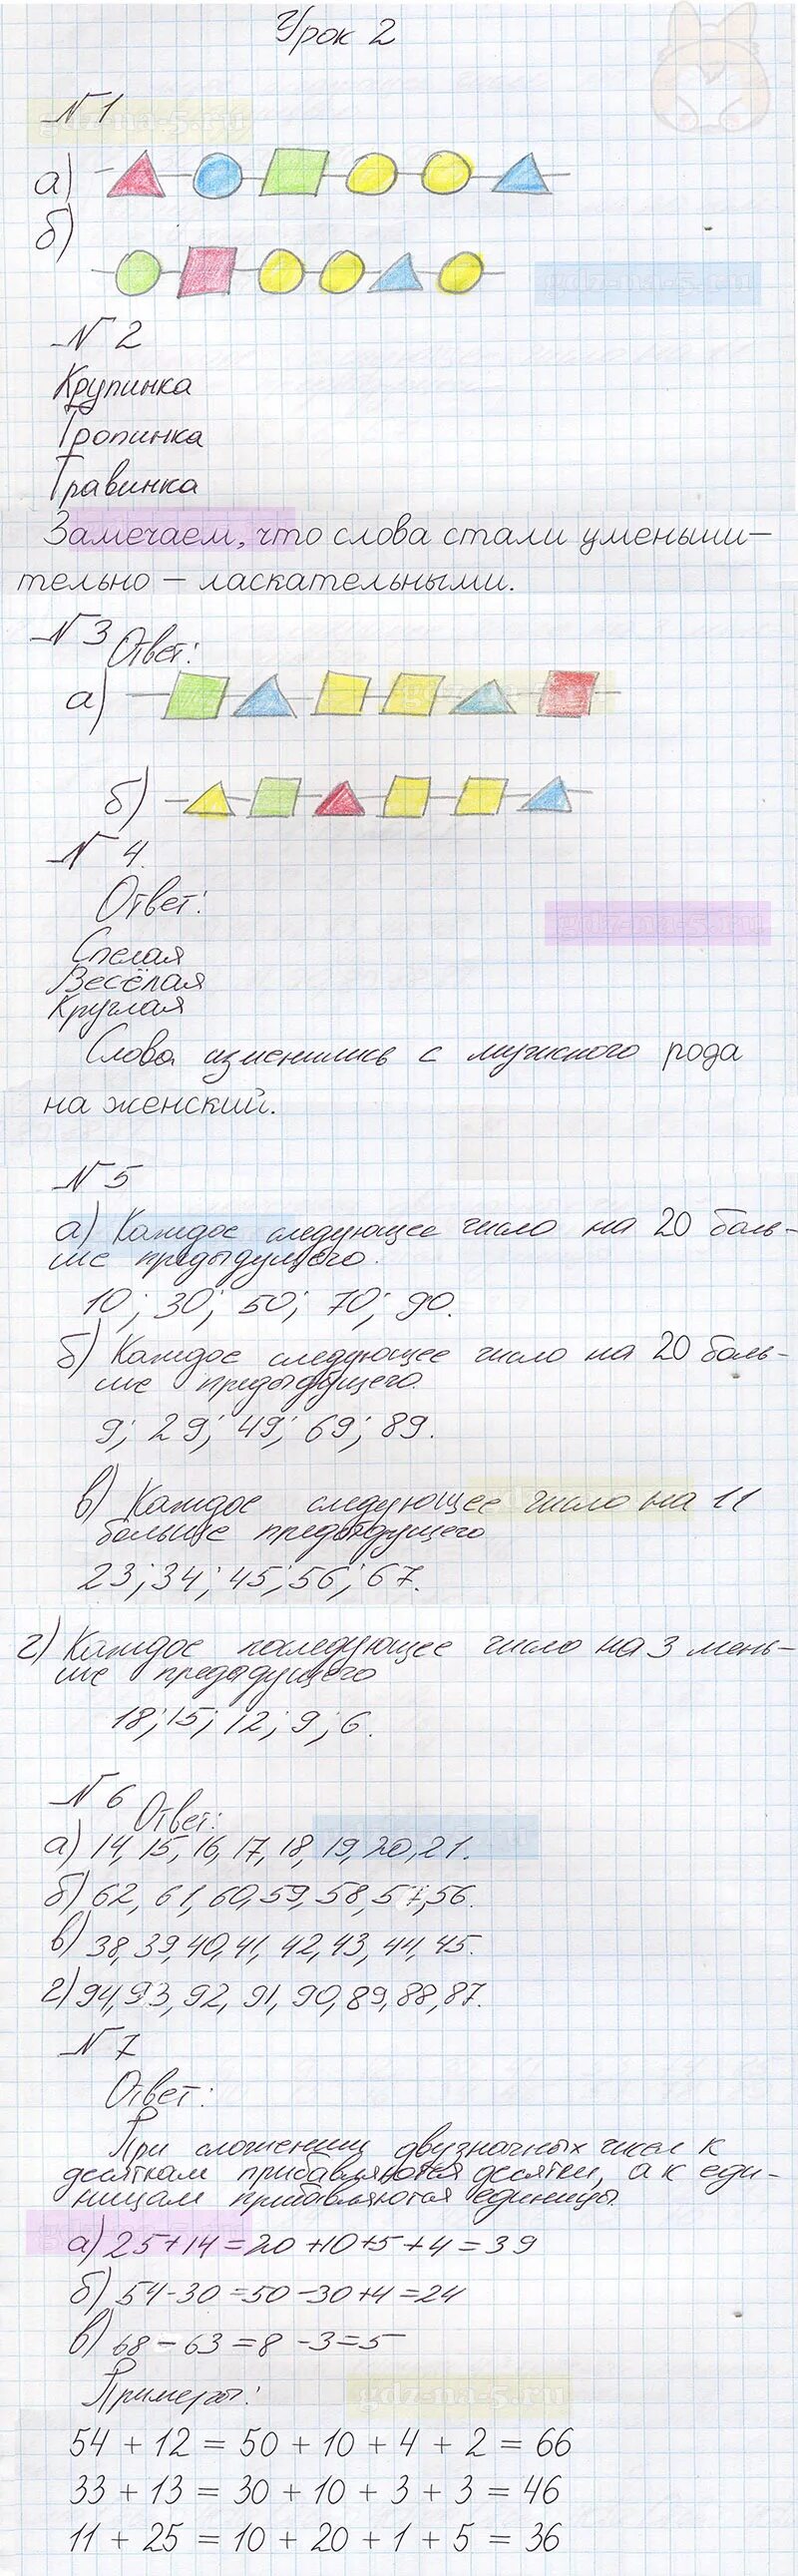 Урок 2
№ 1
gdz-na-5.ru
а)
б)
gdz-na-5.ru
№ 2
Крупинка
Тропинка
Травинка
Замечаем, что слова стали уменьши-
тельно – ласкательными.
№ 3 Ответ:
а)
б)
№ 4.
Ответ:
gdz-na-5.ru
Спелая
Весёлая
Круглая
Слова изменились с мужского рода
на женский.
№ 5
а) Каждое следующее число на 20 боль-
ше предыдущего.
10; 30; 50; 70; 90.
б) Каждое следующее число на 20 боль-
ше предыдущего.
9; 29; 49; 69; 89.
в) Каждое следующее число на 11
больше предыдущего
23; 34; 45; 56; 67.
г) Каждое последующее число на 3 мень-
ше предыдущего
18; 15; 12; 9; 6.
№ 6 Ответ:
а) 14, 15, 16, 17, 18, 19, 20, 21.
б) 62, 61, 60, 59, 58, 57, 56.
в) 38, 39, 40, 41, 42, 43, 44, 45.
г) 94, 93, 92, 91, 90, 89, 88, 87.
№ 7
Ответ:
При сложении двузначных чисел к
десяткам прибавляются десятки, а к еди-
ницам прибавляются единицы.
а) 25 + 14 = 20 + 10 + 5 + 4 = 39
б) 54 - 30 = 50 - 30 + 4 = 24
в) 68 - 63 = 8 - 3 = 5
Примеры:
gdz-na-5.ru
54 + 12 = 50 + 10 + 4 + 2 = 66
33 + 13 = 30 + 10 + 3 + 3 = 46
11 + 25 = 10 + 20 + 1 + 5 = 36